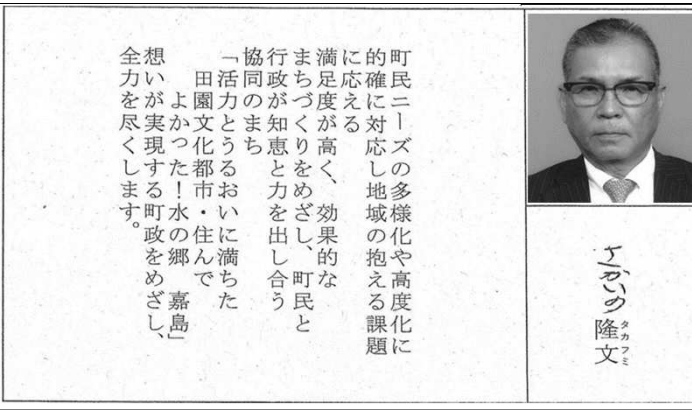 さかいの隆文
タカフミ
町民ニーズの多様化や高度化に
的確に対応し地域の抱える課題
に応える
満足度が高く、効果的な
まちづくりをめざし、町民と
行政が知恵と力を出し合う
協同のまち
「活力とうるおいに満ちた
田園文化都市・住んで
よかった！水の郷　嘉島」
想いが実現する町政をめざし、
全力を尽くします。